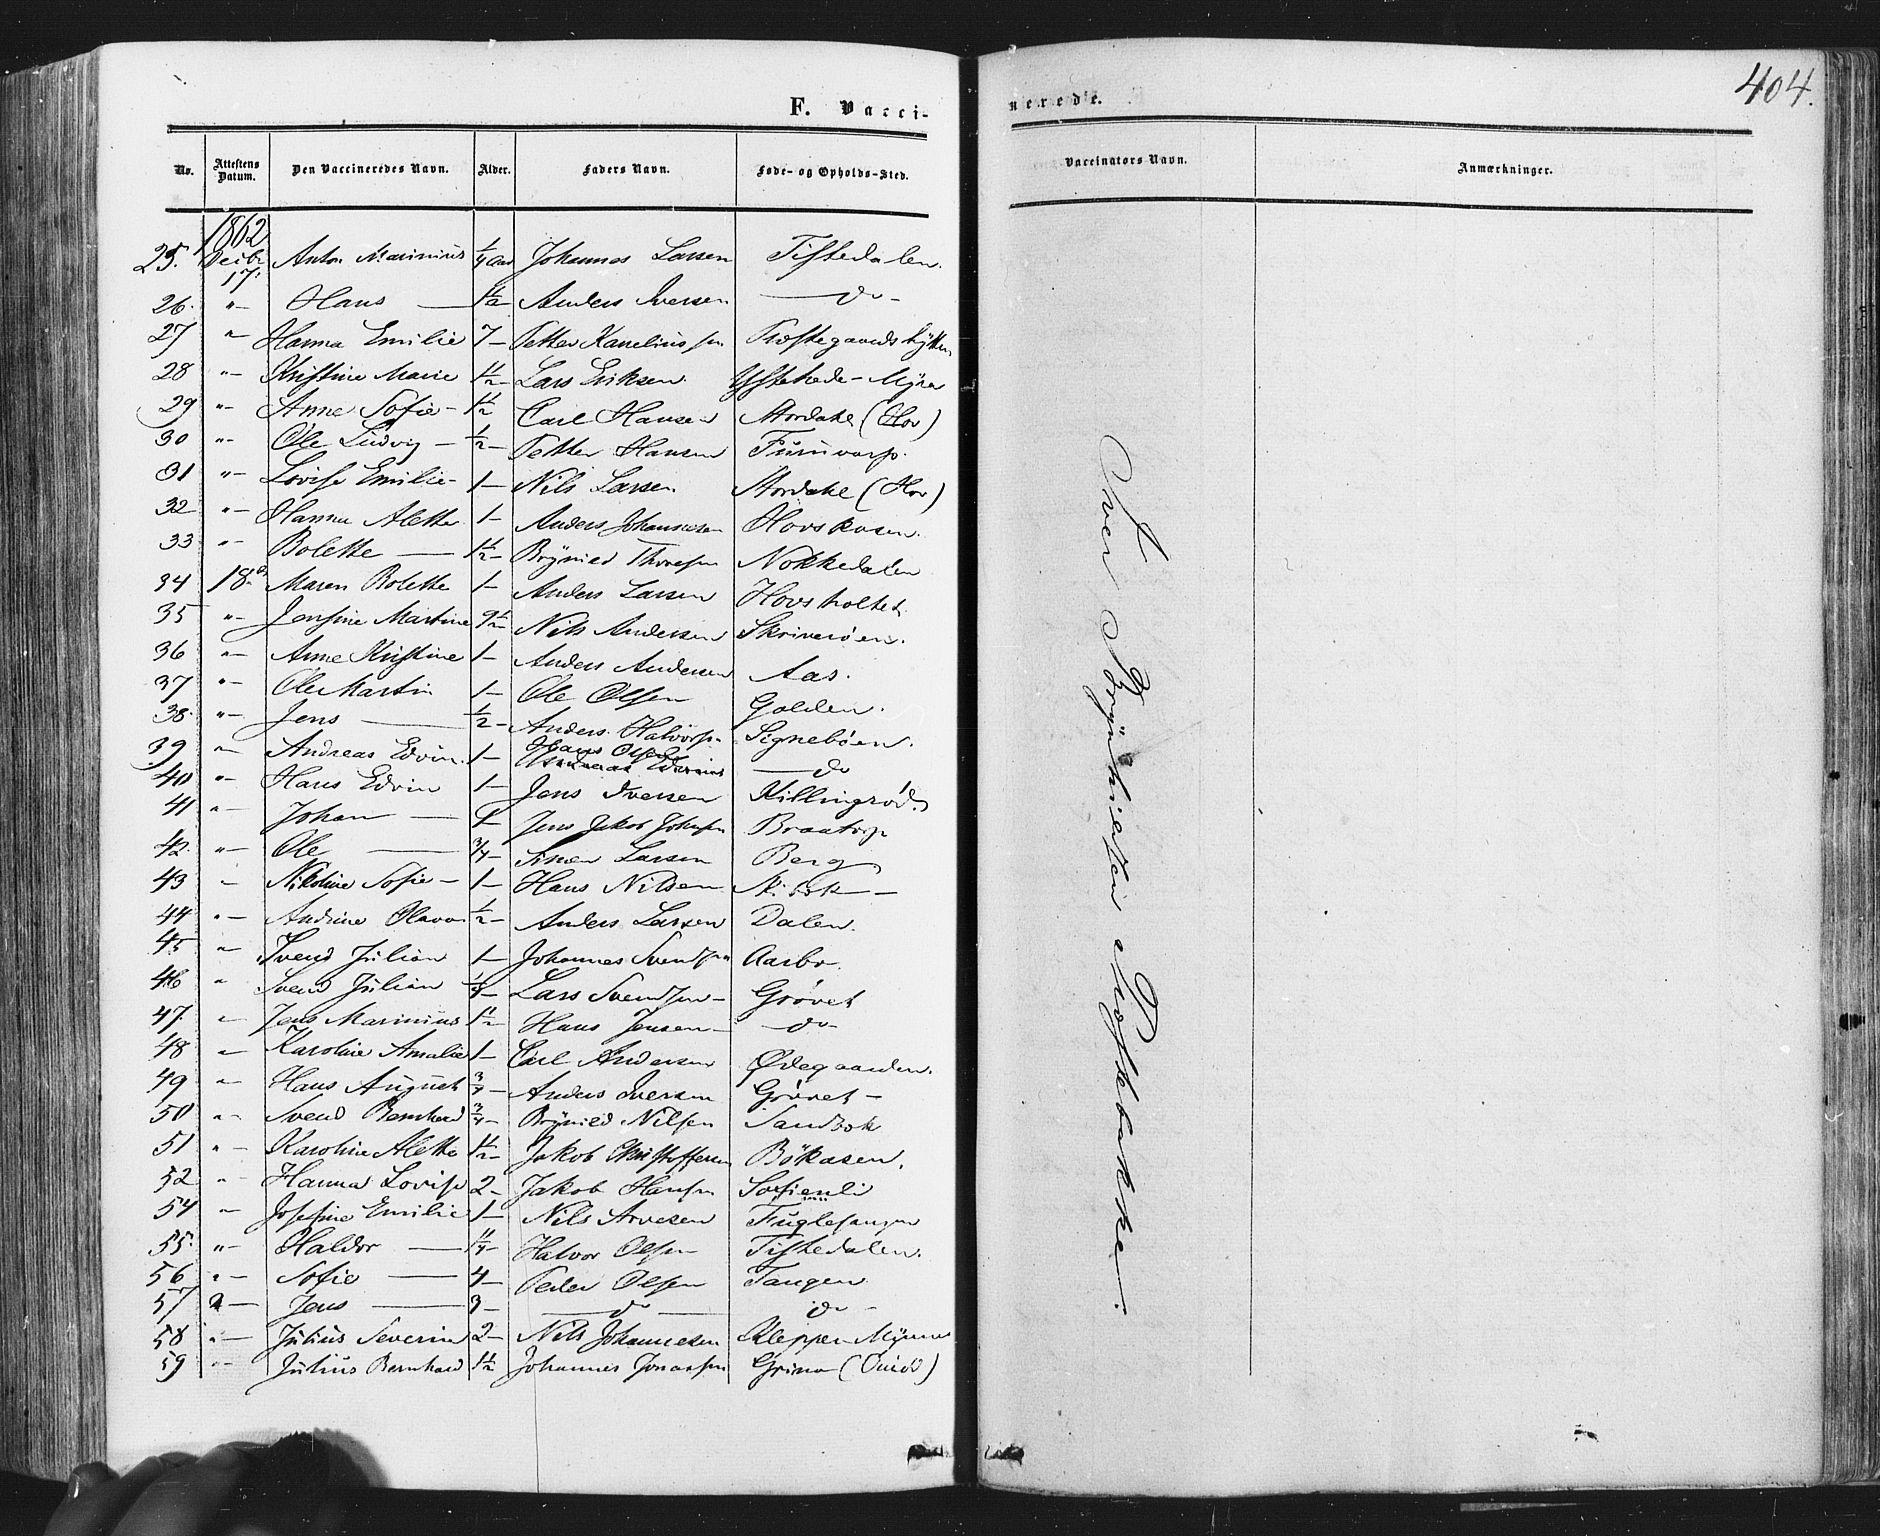 F. Vacci-
No. Attestens Datum. Den Vaccineredes Navn. Alder. Faders Navn. Føde- og Opholds-Sted.
1862
25. Decbr 17. Anton Marinius ¼ Aar Johannes Larsen Tistedalen.
26. "- Hans — 1½ Anders Iversen — do -
27 " Hanna Emilie 7 - Petter Kornelius sen Præstegaards
28 "- Kristine Marie 1½ - Lars Eriksen. Ystehede - Myra
29 "- Anne Sofie - 1½ Carl Hansen Stordahl (Hov)
30 "- Ole Ludvig - ½ - Petter Hansen
31 "- Lovise Emilie - 1 - Nils Larsen Stordahl (Hov)
32 "- Hanna Alette 1 - Anders Johannesen Hovskasen.
33 "- Bolette — 1½ - Brynild Thoresen Nokkedalen
34 18de Maren Bolette 1 - Anders Larsen Hovsholtet.
35 "- Jensine Martine 9½ - Nils Andersen Skriverøen.
36 "- Anne Kristine 1 - Anders Andersen Aas.
37 "- Ole Martin 1 - Ole Olsen Golden.
38. "- Jens — ½ - Anders Halvors. Signebøen.
39 " Andreas Edvin. 1 - Hans Olsen — do
40 "- Hans Edvin 1 - Jens Iversen Killingrød.
41 "- Johan — 1 Jens Jakob Johnsen Braatorp
42. "- Ole — 3/4 - Simen Larsen Berg
43 - Nikoline Sofie - 1 - Hans Nilsen
44 "- Andrine Olava ½ - Anders Larsen Dalen.
45 " Svend Julian 1 - Johannes Svendsen Aasbo.
46 " Svend Julian ¼ - Lars Svendsen - Grøvet
47. - Jens Marinius 1½ Hans Jensen - - do -
48 - Karoline Amalie 1 - Carl Andersen Ødegaarden.
49 " Hans August 3/4 - Anders Iversen Grøvet -
50 " Svend Bernhard 3/4 - Brynild Nilsen Sandbæk
51 "- Karoline Alette 1½ - Jakob Christoffersen Bøkasen.
52 "- Hanna Lovise 2 - Jakob Hansen Sofienli
54 " Josefine Emilie 1 - Nils Arvesen Fuglesangen
55. "- Haldor — 1¼ - Halvor Olsen Tistedalen.
56 "- Sofie — 4 - Peder Olsen Tangen
57 - Jens — 3 - — do — do -
58 "- Julius Severin 2 - Nils Johannesen Kleppen Myrene
59 "- Julius Bernhard 1½ Johannes Jonassen Grimo (Enied)
nerede.
404.
Vaccinators Navn. Anmærkninger.
Iver Brynhildsen Præstebakke.